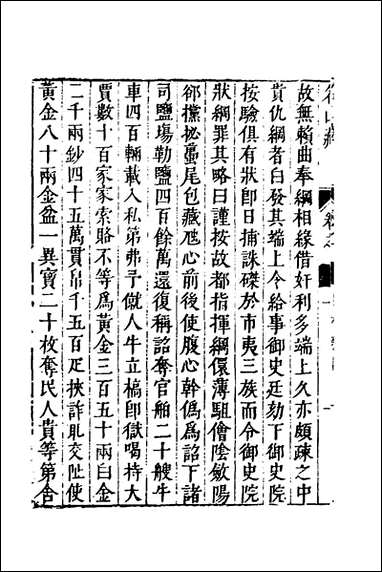 名山藏 卷之
故無賴曲奉綱相緣借奸利多端上久亦頗疎之中
貴仇綱者白發其端上令給事御史廷劾下御史院
按驗俱有狀即日捕誅磔於市夷三族而令御史院
狀綱罪其略曰謹按故都指揮綱儇薄駔儈陰斂陽
邠攩挱蠆尾包藏虺心前後使腹心幹僞爲詔下諸
司鹽塲勒鹽四百餘萬還復稱詔奪官舶二十艘牛
車四百輛載入私第弗予僦人牛立槁卽獄喝持大
賈數十百家家索賂不等爲黃金三百五十兩白金
二千兩鈔四十五萬貫帛千五百疋挾詐乩交阯使
黃金八十兩金盆一異寶二十枚奪民人貴等第舍